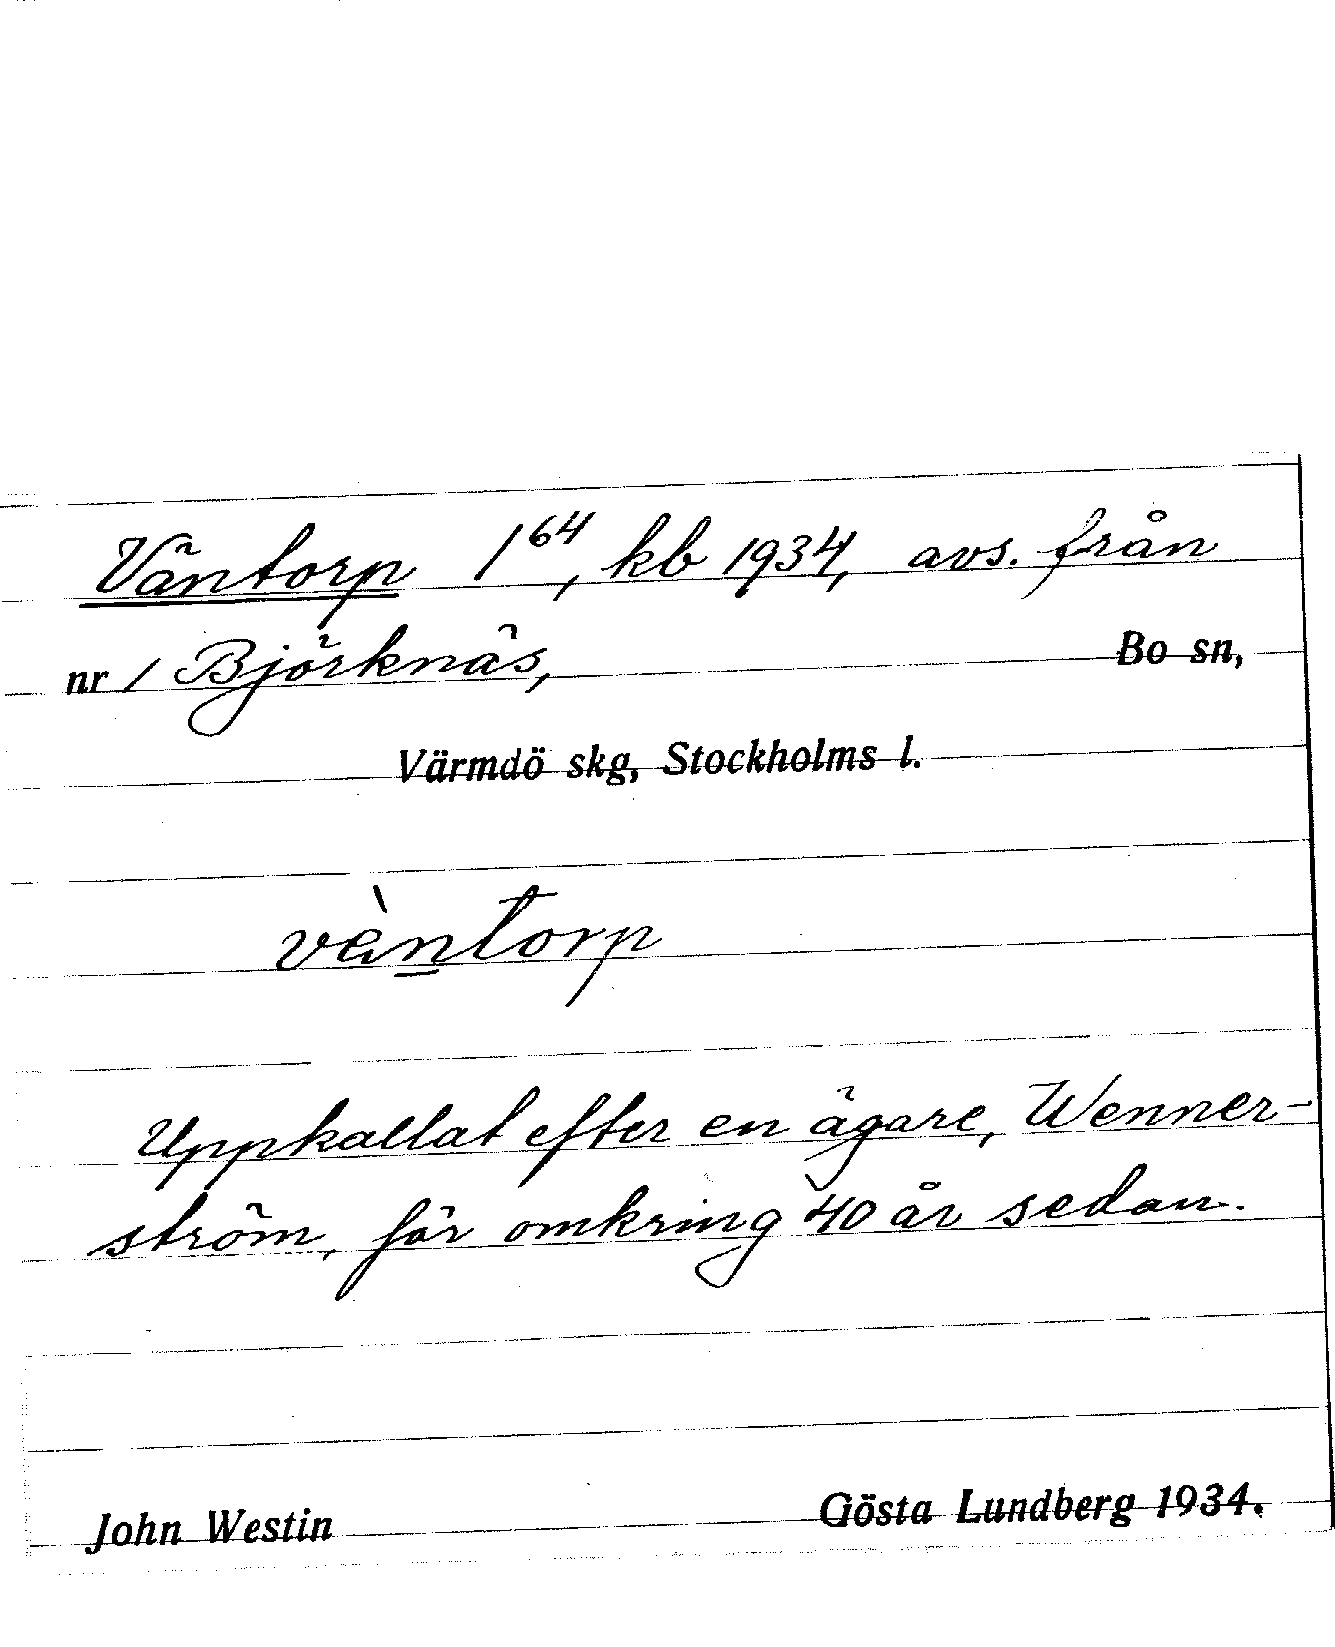 Väntorp 1⁶⁴, kb 1934, avs. från
nr 1 Björknäs, Bo sn,
Värmdö skg, Stockholms l.
vèntorp
Uppkallat efter en ägare, Wenner-
ström, för omkring 40 år sedan.
John Westin Gösta Lundberg 1934.